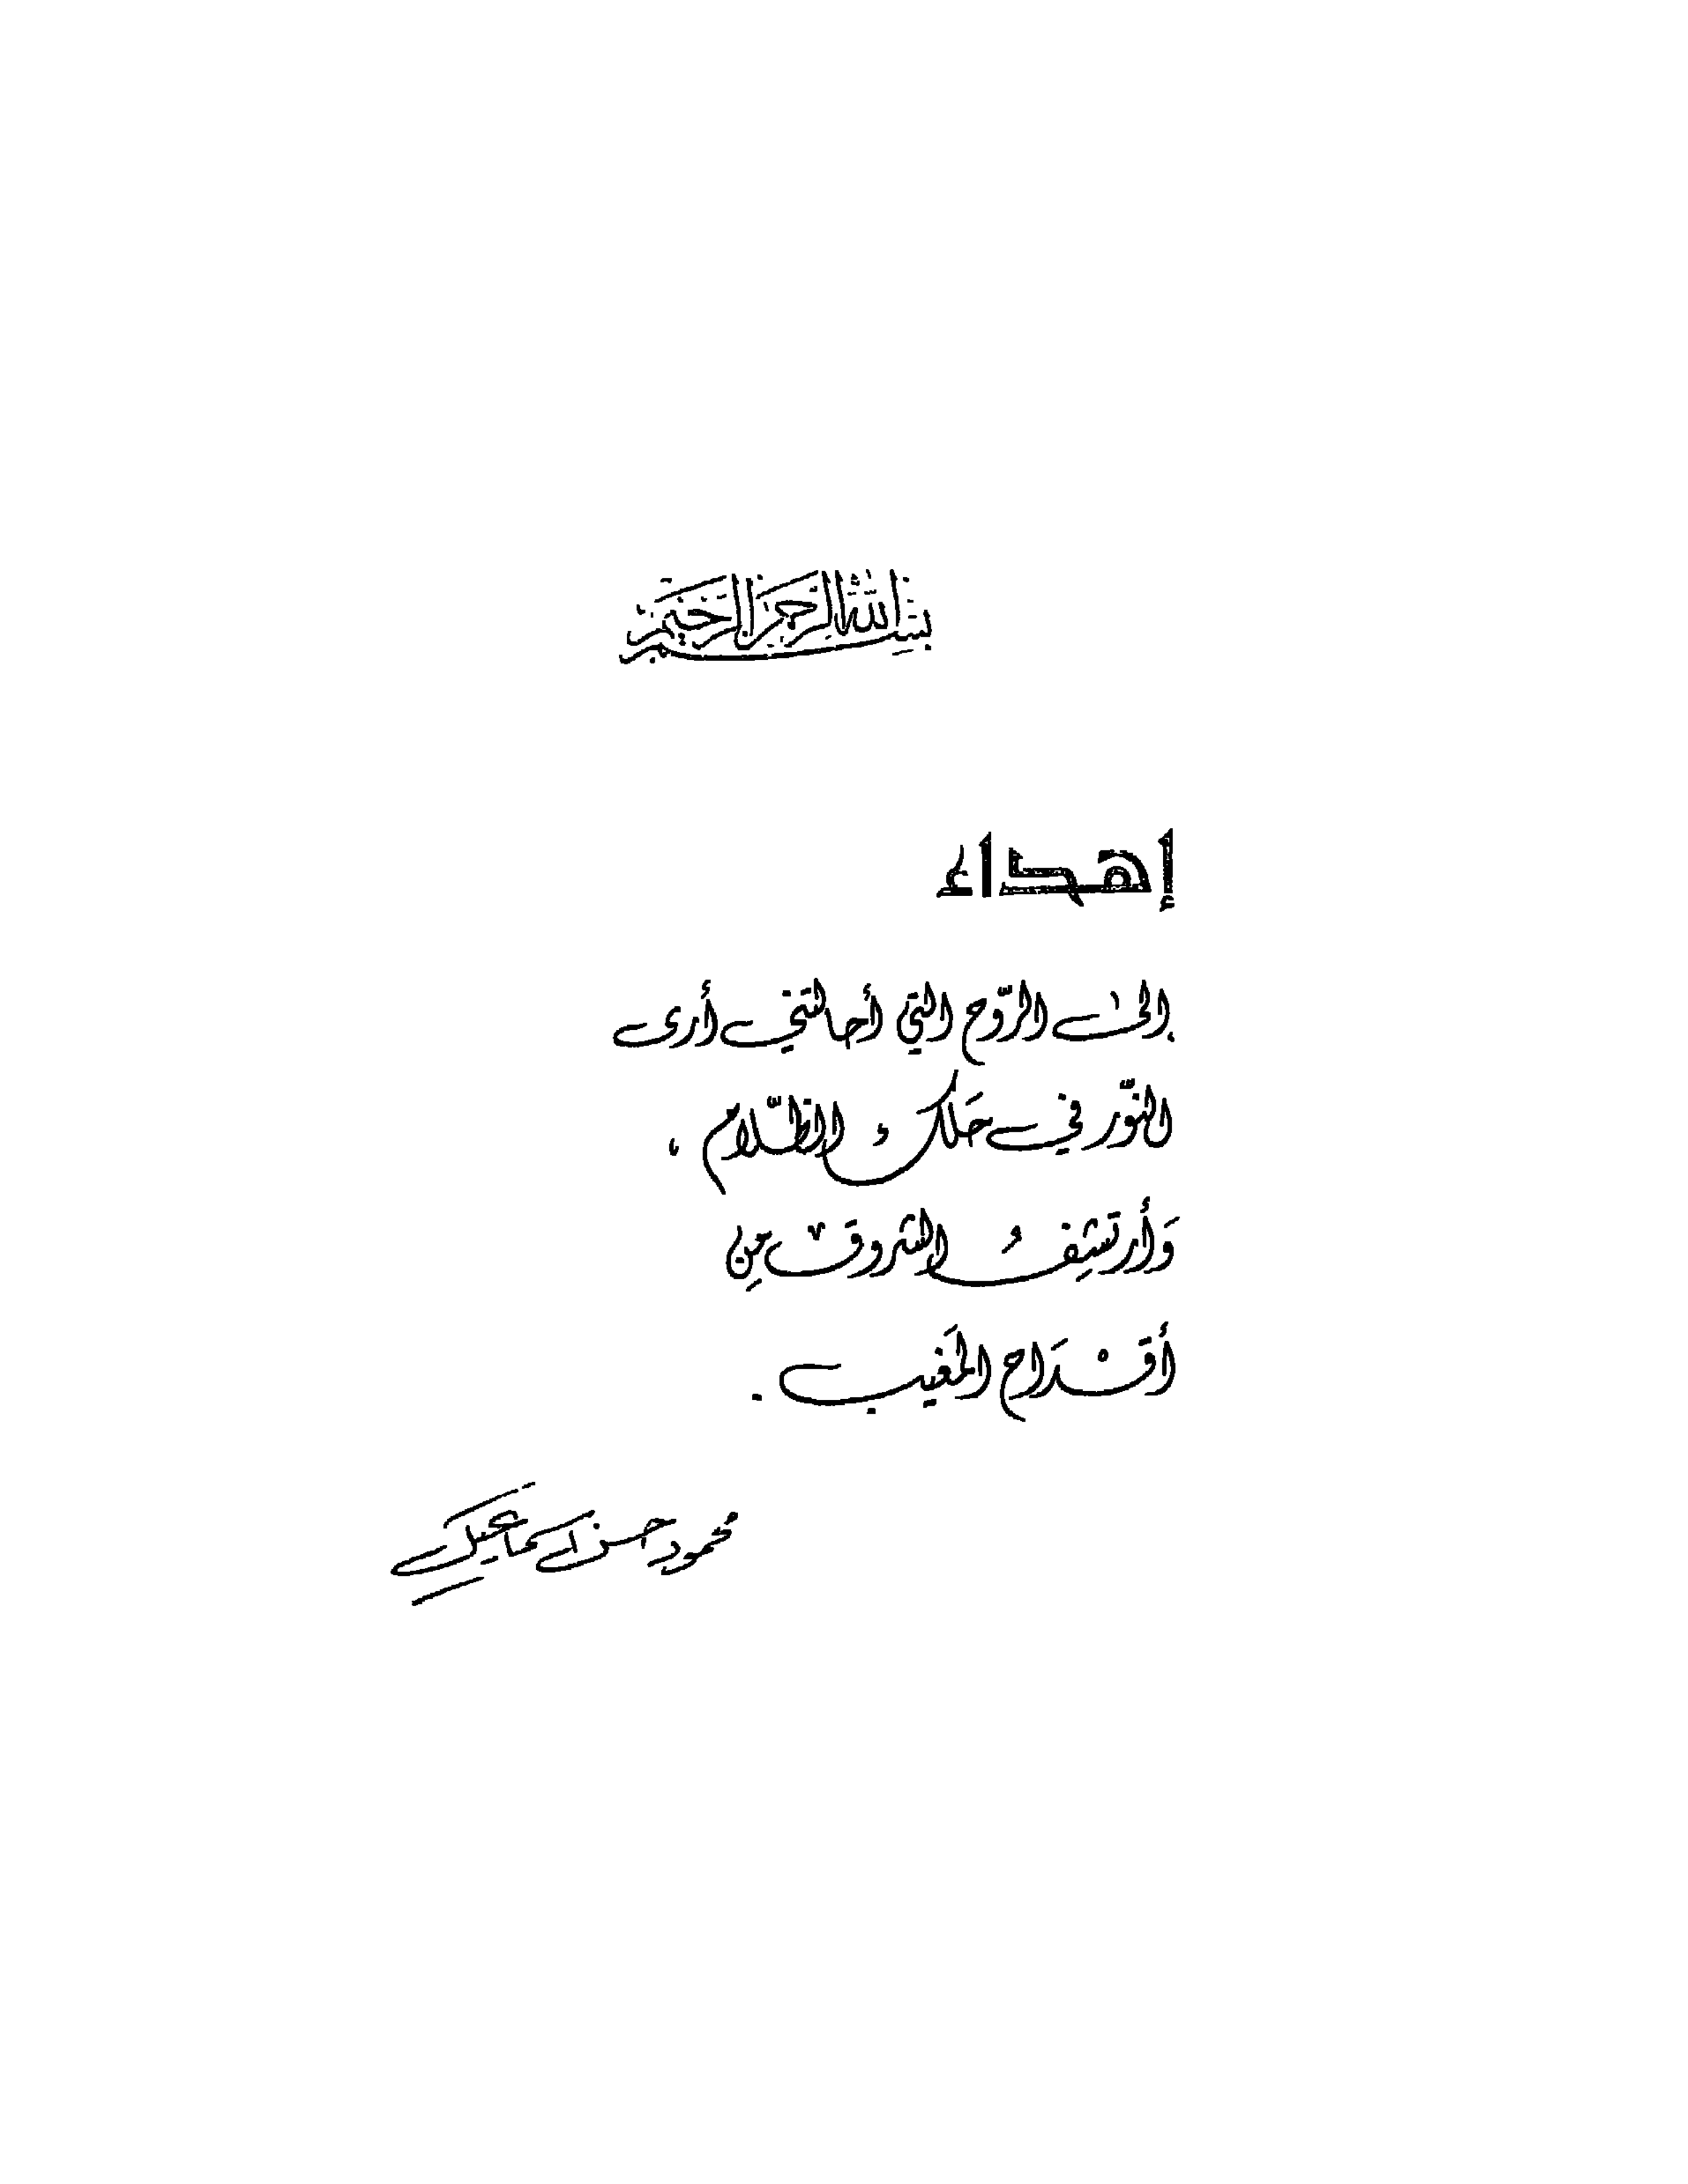 بسم الله الرحمن الرحيم
إهداء
إلى الرّوح التي أحالتني أرى
النّور في حَلك الظّلام ،
وَأرتشِفُ الشروق مِن
أقْدَاح المَغيب .
محمود حسن إسماعيل